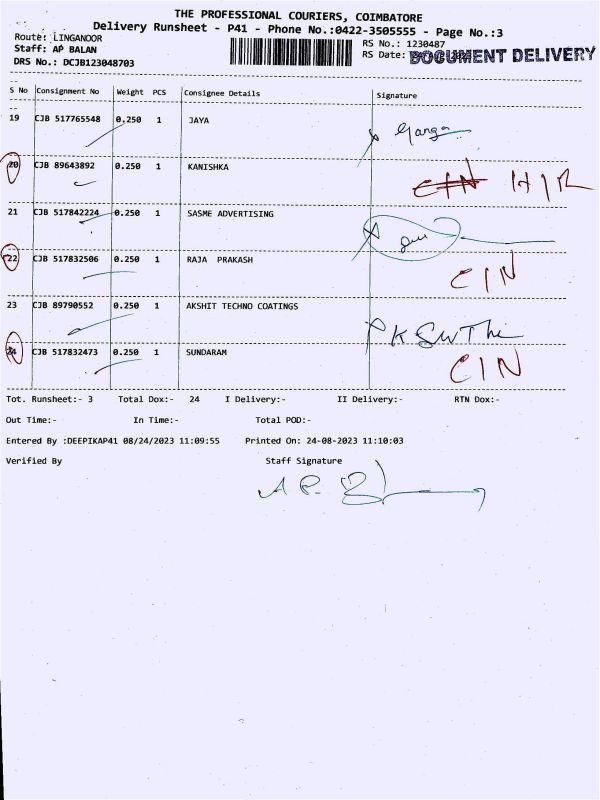 THE PROFESSIONAL COURIERS, COIMBATORE
Delivery Runsheet - P41 - Phone No.:0422-3505555 - Page No.:3
Route: LINGANOOR
RS No.: 1230487
Staff: AP BALAN
RS Date: DOCUMENT DELIVERY
DRS No.: DCJB123048703
S No Consignment No Weight PCS Consignee Details Signature
19 CJB 517765548 0.250 1 JAYA Ganga
20 CJB 89643892 0.250 1 KANISHKA CIN
21 CJB 517842224 0.250 1 SASME ADVERTISING
22 CJB 517832506 0.250 1 RAJA PRAKASH CIN
23 CJB 89790552 0.250 1 AKSHIT TECHNO COATINGS
24 CJB 517832473 0.250 1 SUNDARAM CIN
Tot. Runsheet:- 3 Total Dox:- 24 I Delivery:- II Delivery:- RTN Dox:-
Out Time:- In Time:- Total POD:-
Entered By :DEEPIKAP41 08/24/2023 11:09:55 Printed On: 24-08-2023 11:10:03
Verified By Staff Signature